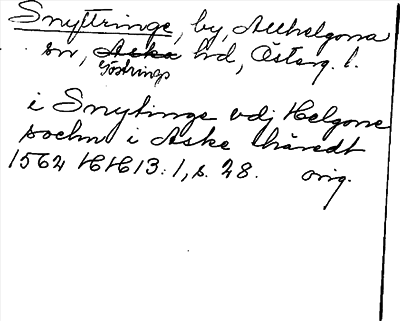 Snyttringe, by, Allhelgona
sn, Aska hd, Österg. l.
Göstrings
i Snytinge vdj Helgone
sochn i Aske häredt
1562 HH 13:1, s. 28. orig.